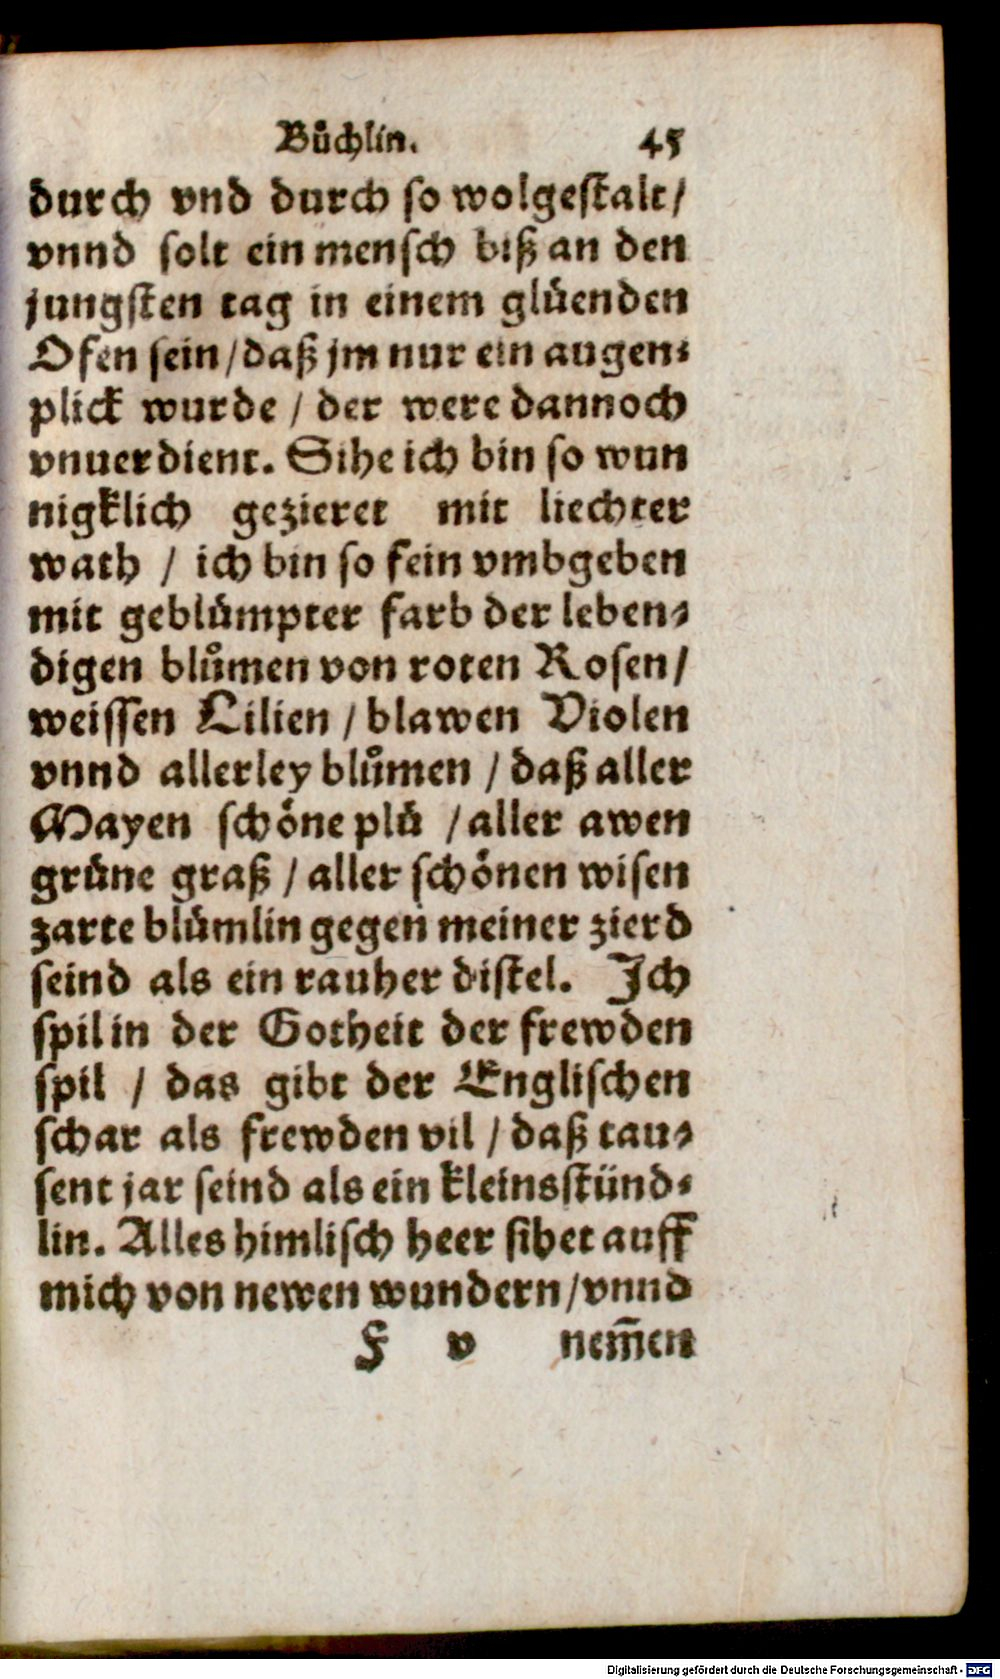 Bůchlin. 45
durch vnd durch so wolgestalt/
vnnd solt ein mensch biß an den
jungsten tag in einem glůenden
Ofen sein/daß jm nur ein augen⸗
plick wurde / der were dannoch
vnuerdient. Sihe ich bin so wun
nigklich gezieret mit liechter
wath / ich bin so fein vmbgeben
mit geblůmpter farb der leben⸗
digen blůmen von roten Rosen/
weissen Lilien / blawen Violen
vnnd allerley blůmen / daß aller
Mayen schöne plů / aller awen
grůne graß / aller schönen wisen
zarte blůmlin gegen meiner zierd
seind als ein rauher distel. Ich
spil in der Gotheit der frewden
spil / das gibt der Englischen
schar als frewden vil / daß tau⸗
sent jar seind als ein kleins stünd⸗
lin. Alles himlisch heer sihet auff
mich von newen wundern/vnnd
F v nem̄en
Digitalisierung gefördert durch die Deutsche Forschungsgemeinschaft - DFG